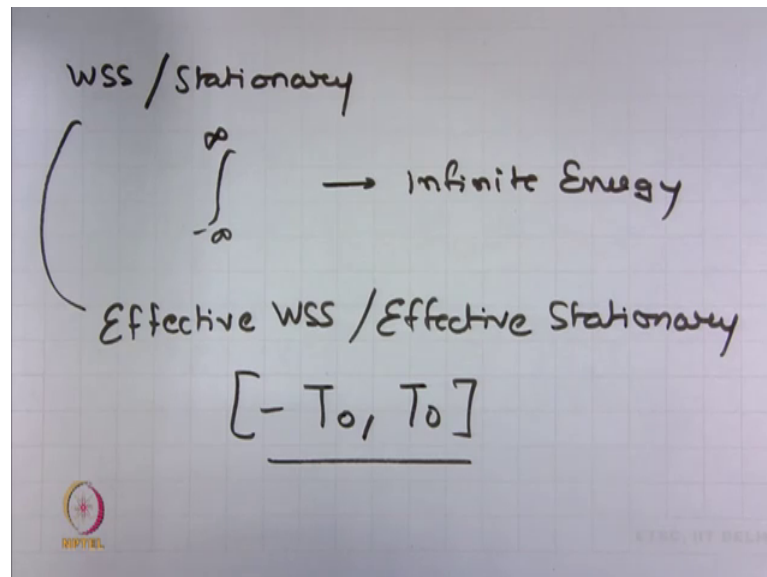 WSS / Stationary
∞
∫ → Infinite Energy
-∞
Effective WSS / Effective Stationary
[- To, To]
NPTEL
ETSC, IIT DELHI